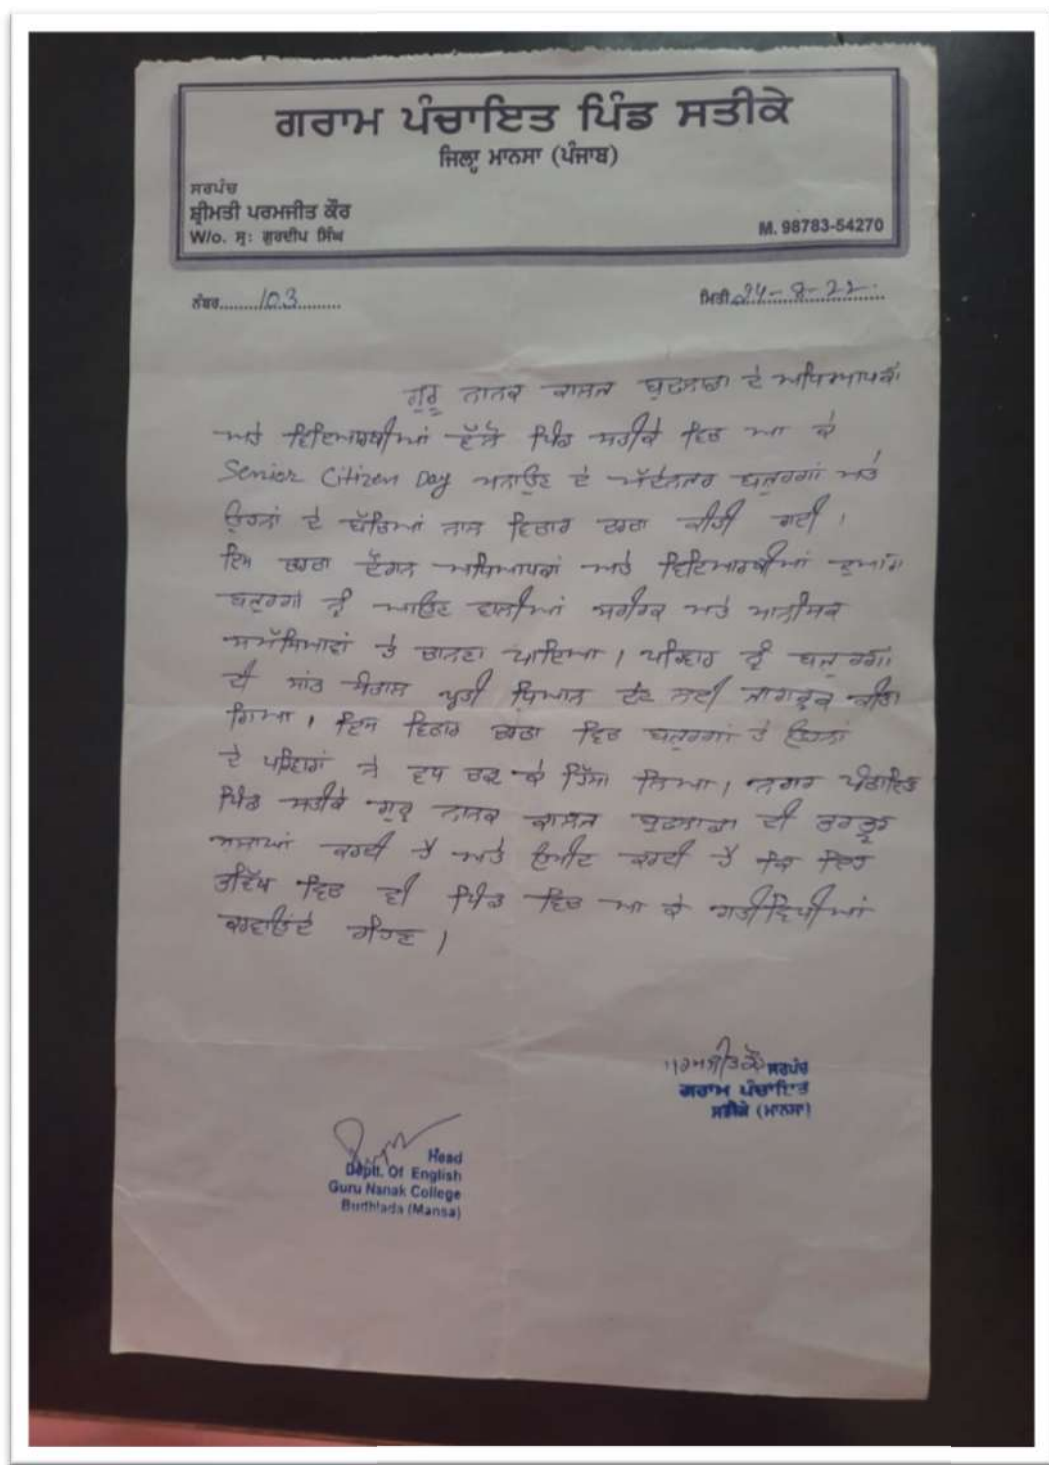 ਗਰਾਮ ਪੰਚਾਇਤ ਪਿੰਡ ਸਤੀਕੇ
ਜਿਲ੍ਹਾ ਮਾਨਸਾ (ਪੰਜਾਬ)
ਸਰਪੰਚ
ਸ਼੍ਰੀਮਤੀ ਪਰਮਜੀਤ ਕੌਰ
W/o. ਸ੍ਰ: ਗੁਰਦੀਪ ਸਿੰਘ
M. 98783-54270
ਨੰਬਰ.........103.........
ਮਿਤੀ 24-8-22
ਗੁਰੂ ਨਾਨਕ ਕਾਲਜ ਬੁਢਲਾਡਾ ਦੇ ਅਧਿਆਪਕਾਂ
ਅਤੇ ਵਿਦਿਆਰਥੀਆਂ ਵੱਲੋਂ ਪਿੰਡ ਸਤੀਕੇ ਵਿਚ ਆ ਕੇ
Senior Citizen Day ਮਨਾਉਣ ਦੇ ਮੱਦੇਨਜਰ ਬਜੁਰਗਾਂ ਅਤੇ
ਉਹਨਾਂ ਦੇ ਬੱਚਿਆਂ ਨਾਲ ਵਿਚਾਰ ਚਰਚਾ ਕੀਤੀ ਗਈ।
ਇਸ ਚਰਚਾ ਦੌਰਾਨ ਅਧਿਆਪਕਾਂ ਅਤੇ ਵਿਦਿਆਰਥੀਆਂ ਦੁਆਰਾ
ਬਜੁਰਗਾਂ ਨੂੰ ਆਉਣ ਵਾਲੀਆਂ ਸਰੀਰਕ ਅਤੇ ਮਾਨਸਿਕ
ਸਮੱਸਿਆਵਾਂ ਤੇ ਚਾਨਣਾ ਪਾਇਆ। ਪਰਿਵਾਰ ਨੂੰ ਬਜੁਰਗਾਂ
ਦੀ ਸਾਂਭ ਸੰਭਾਲ ਪ੍ਰਤੀ ਧਿਆਨ ਦੇਣ ਲਈ ਜਾਗਰੂਕ ਕੀਤਾ
ਗਿਆ। ਇਸ ਵਿਚਾਰ ਚਰਚਾ ਵਿਚ ਬਜੁਰਗਾਂ ਤੇ ਉਹਨਾਂ
ਦੇ ਪਰਿਵਾਰਾਂ ਨੇ ਵਧ ਚੜ ਕੇ ਹਿੱਸਾ ਲਿਆ। ਨਗਰ ਪੰਚਾਇਤ
ਪਿੰਡ ਸਤੀਕੇ ਗੁਰੂ ਨਾਨਕ ਕਾਲਜ ਬੁਢਲਾਡਾ ਦੀ ਭਰਪੂਰ
ਕਰਦੀ ਹੈ ਅਤੇ ਉਮੀਦ ਕਰਦੀ ਹੈ ਕਿ ਇਹ
ਭਵਿੱਖ ਵਿਚ ਵੀ ਪਿੰਡ ਵਿਚ ਆ ਕੇ ਗਤੀਵਿਧੀਆਂ
ਕਰਵਾਉਂਦੇ ਰਹਿਣ।
ਪਰਮਜੀਤ ਕੌਰ ਸਰਪੰਚ
ਗਰਾਮ ਪੰਚਾਇਤ
ਸਤੀਕੇ (ਮਾਨਸਾ)
Head
Deptt. Of English
Guru Nanak College
Budhlada (Mansa)